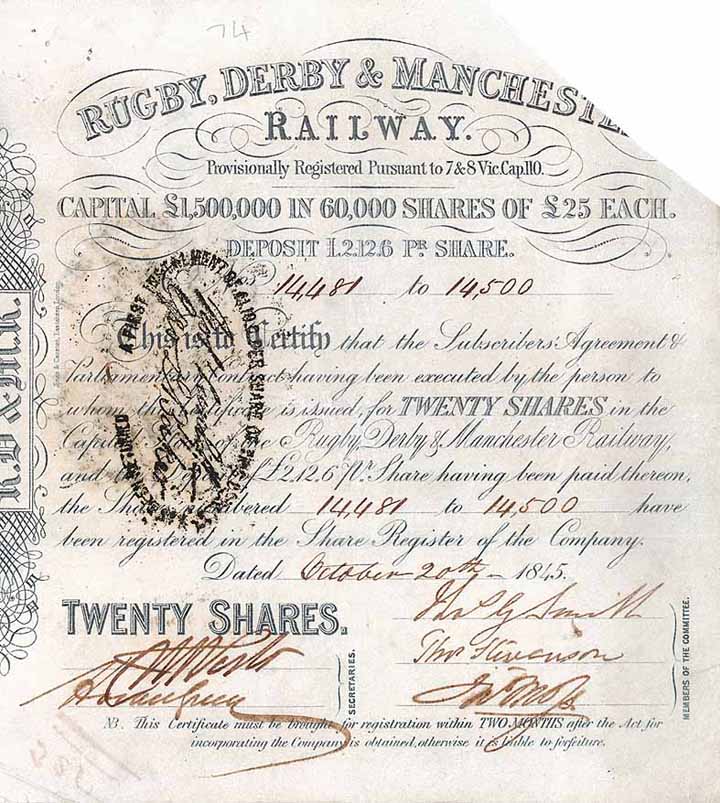 74
RUGBY, DERBY & MANCHESTE
RAILWAY.
Provisionally Registered Pursuant to 7 & 8 Vic. Cap. 110.
CAPITAL £1,500,000 IN 60,000 SHARES OF £25 EACH.
DEPOSIT £2.12.6 PR SHARE.
14,481 to 14,500
This is to Certify that the Subscribers Agreement &
Parliamentary Contract having been executed by the person to
whom this Certificate is issued, for TWENTY SHARES in the
Capital of the Rugby, Derby & Manchester Railway,
and the of £2.12.6 pr Share having been paid thereon,
the Shares numbered 14,481 to 14,500 have
been registered in the Share Register of the Company.
Dated October 20th 1845.
TWENTY SHARES.
Thos Stevenson
SECRETARIES.
MEMBERS OF THE COMMITTEE.
NB. This Certificate must be brought for registration within TWO MONTHS after the Act for
incorporating the Company is obtained, otherwise it is liable to forfeiture.
R.D & M.R.
A FIRST INSTALMENT OF PER SHARE